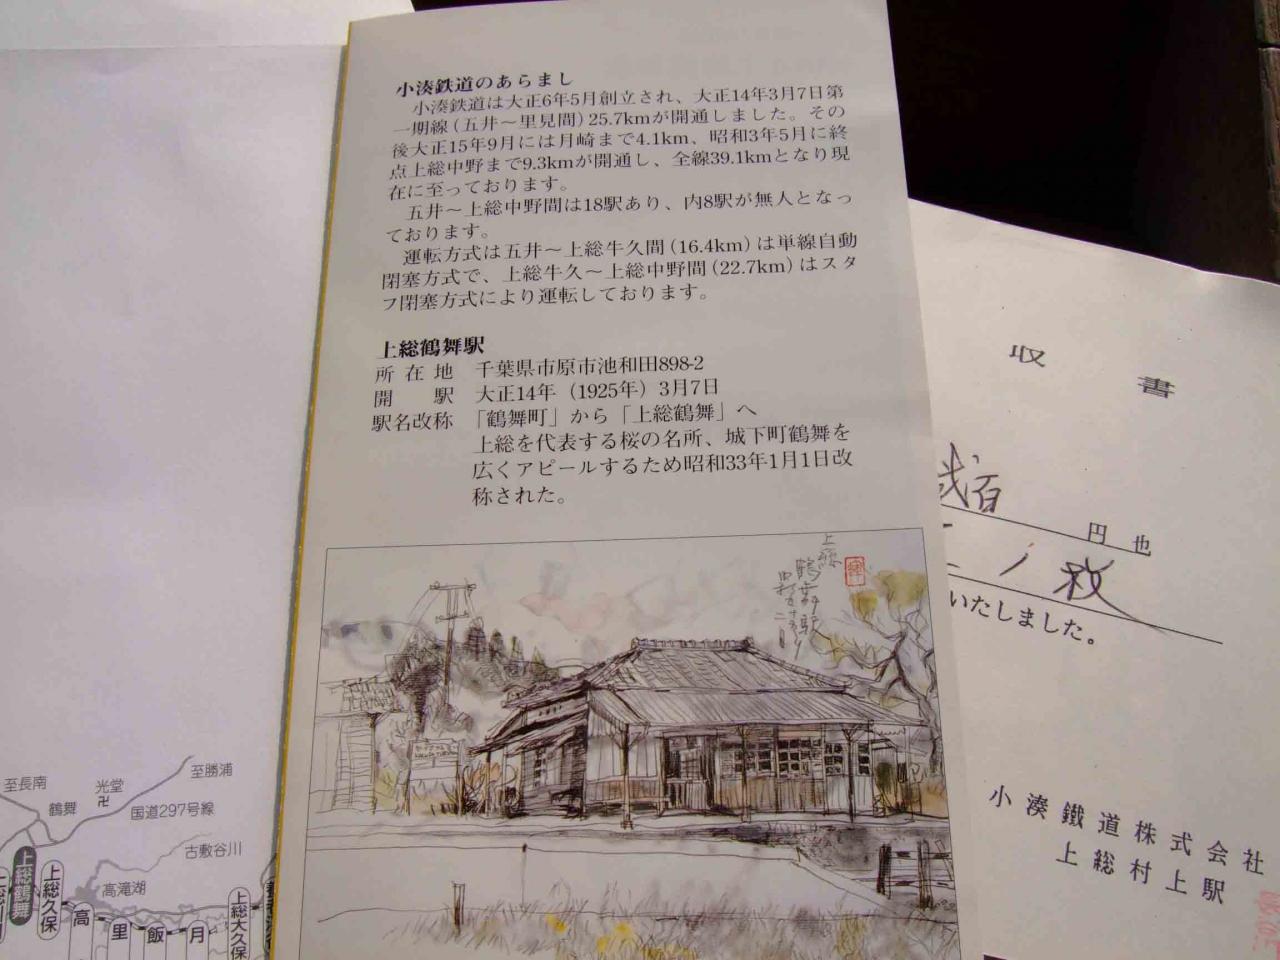 小湊鉄道のあらまし
小湊鉄道は大正6年5月創立され、大正14年3月7日第
一期線(五井～里見間)25.7kmが開通しました。その
後大正15年9月には月崎まで4.1km、昭和3年5月に終
点上総中野まで9.3kmが開通し、全線39.1kmとなり現
在に至っております。
五井～上総中野間は18駅あり、内8駅が無人となっ
ております。
運転方式は五井～上総牛久間(16.4km)は単線自動
閉塞方式で、上総牛久～上総中野間(22.7km)はスタ
フ閉塞方式により運転しております。
上総鶴舞駅
所在地 千葉県市原市池和田898-2
開駅 大正14年(1925年)3月7日
駅名改称 「鶴舞町」から「上総鶴舞」へ
上総を代表する桜の名所、城下町鶴舞を
広くアピールするため昭和33年1月1日改
称された。
上総
鶴舞駅
至長南
光堂
至勝浦
鶴舞
国道297号線
古敷谷川
高滝湖
上総鶴舞
上総久保
高
里
飯
月
上総大久保
収書
弐百
円也
枚
いたしました。
小湊鐵道株式会社
上総村上駅